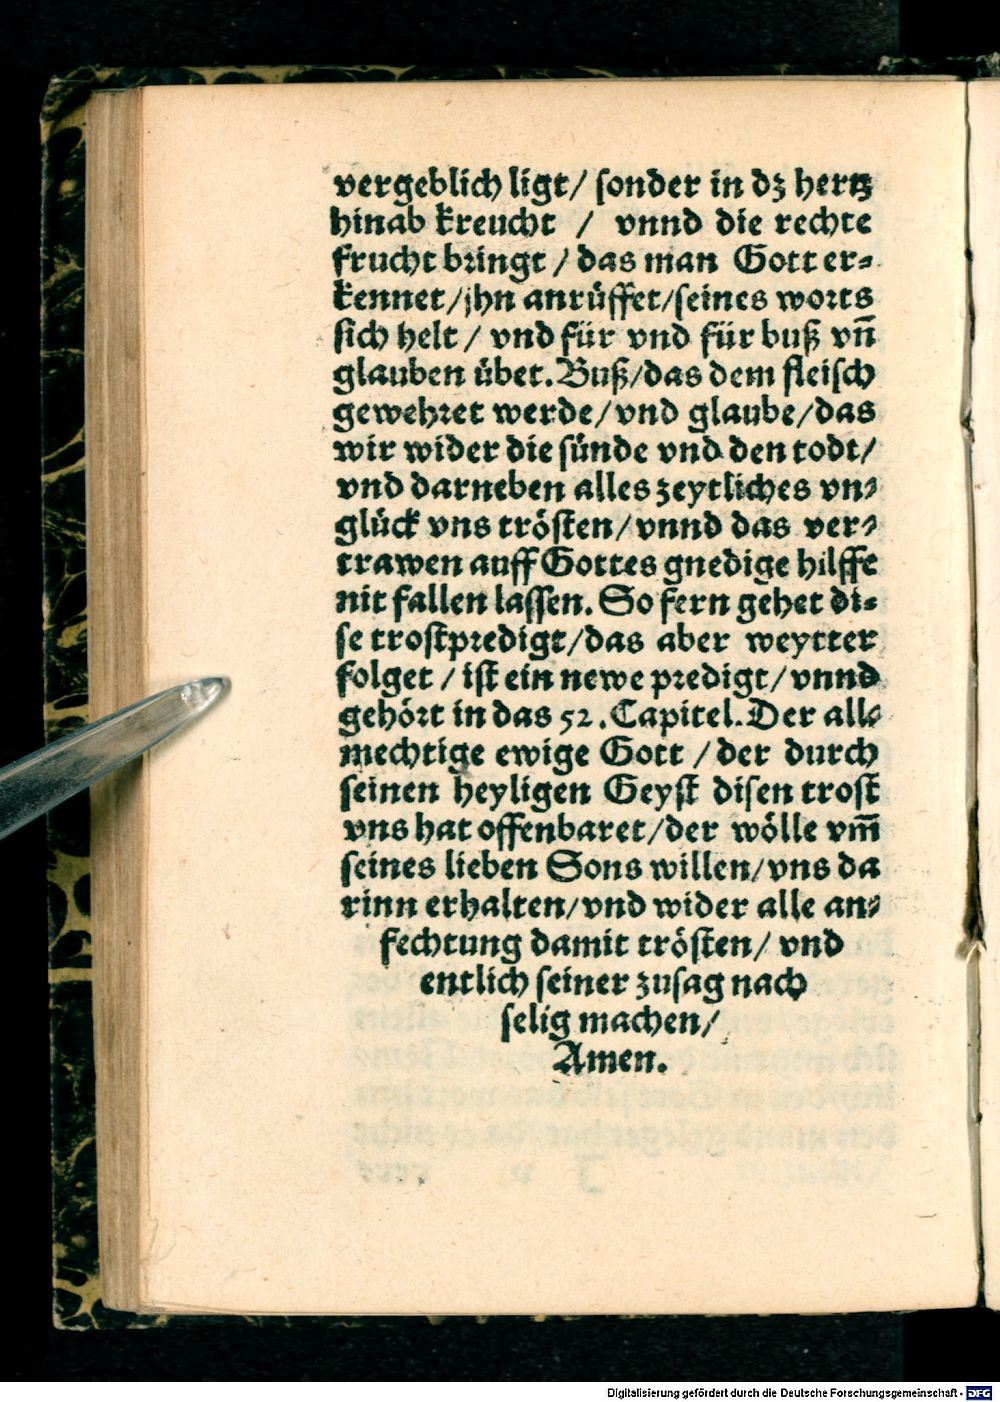 vergeblich ligt/ sonder in dz hertz
hinab kreucht / vnnd die rechte
frucht bringt / das man Gott er-
kennet/jhn anrüffet/seines worts
sich helt / vnd für vnd für buß vn̄
glauben übet. Buß/das dem fleisch
gewehret werde/vnd glaube/das
wir wider die sünde vnd den todt/
vnd darneben alles zeytliches vn-
glück vns trösten/vnnd das ver-
trawen auff Gottes gnedige hilffe
nit fallen lassen. So fern gehet di-
se trostpredigt/das aber weytter
folget / ist ein newe predigt/vnnd
gehört in das 52. Capitel. Der all-
mechtige ewige Gott / der durch
seinen heyligen Geyst disen trost
vns hat offenbaret/der wölle vm̄
seines lieben Sons willen/vns da
rinn erhalten/vnd wider alle an-
fechtung damit trösten/ vnd
entlich seiner zusag nach
selig machen/
Amen.
Digitalisierung gefördert durch die Deutsche Forschungsgemeinschaft - DFG